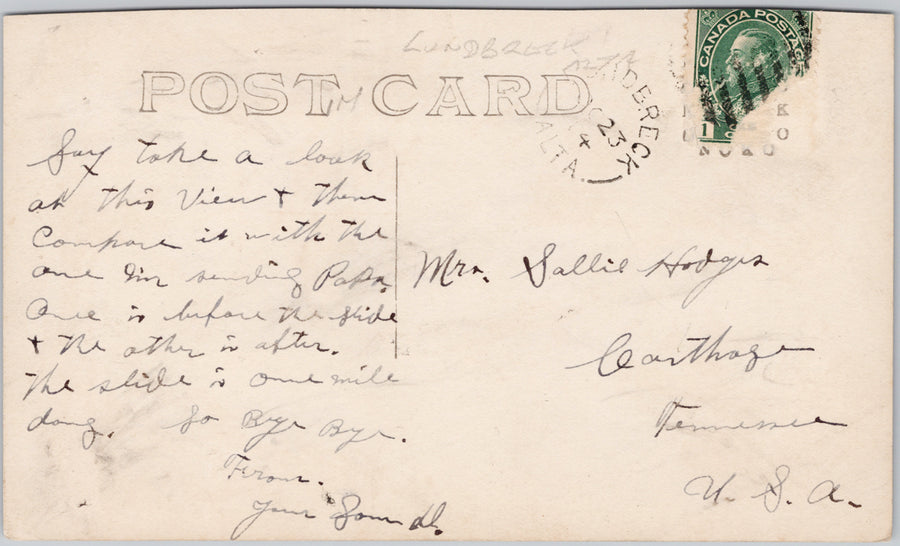 LUNDBRECK
ALTA
POST CARD
CANADA POSTAGE
1
DBRECK
23
4
ALTA.
Say take a look
at this View + then
Compare it with the
one Im sending Papa.
One is before the slide
+ the other is after.
the slide is one mile
long. So Bye Bye.
From.
Your Son
Mrs. Sallie Hodges
Carthage
Tennessee
U. S. A.